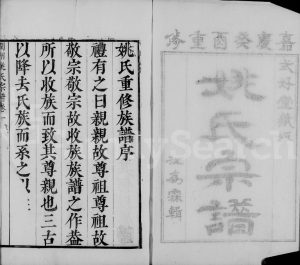 嘉慶癸酉重修
姚氏宗譜
姚氏重修族譜序
禮有之曰親親故尊祖尊祖故
敬宗敬宗故收族族譜之作蓋
所以收族而致其尊親也三古
以降去氏族而系之以